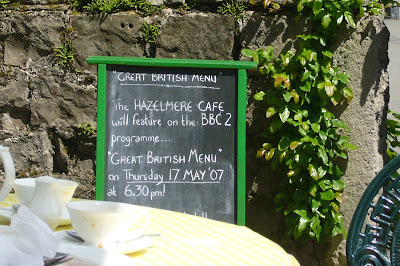 "GREAT BRITISH MENU"
The HAZELMERE CAFE
will feature on the BBC 2
programme...
"GREAT BRITISH MENU"
on Thursday 17 MAY '07
at 6.30pm!